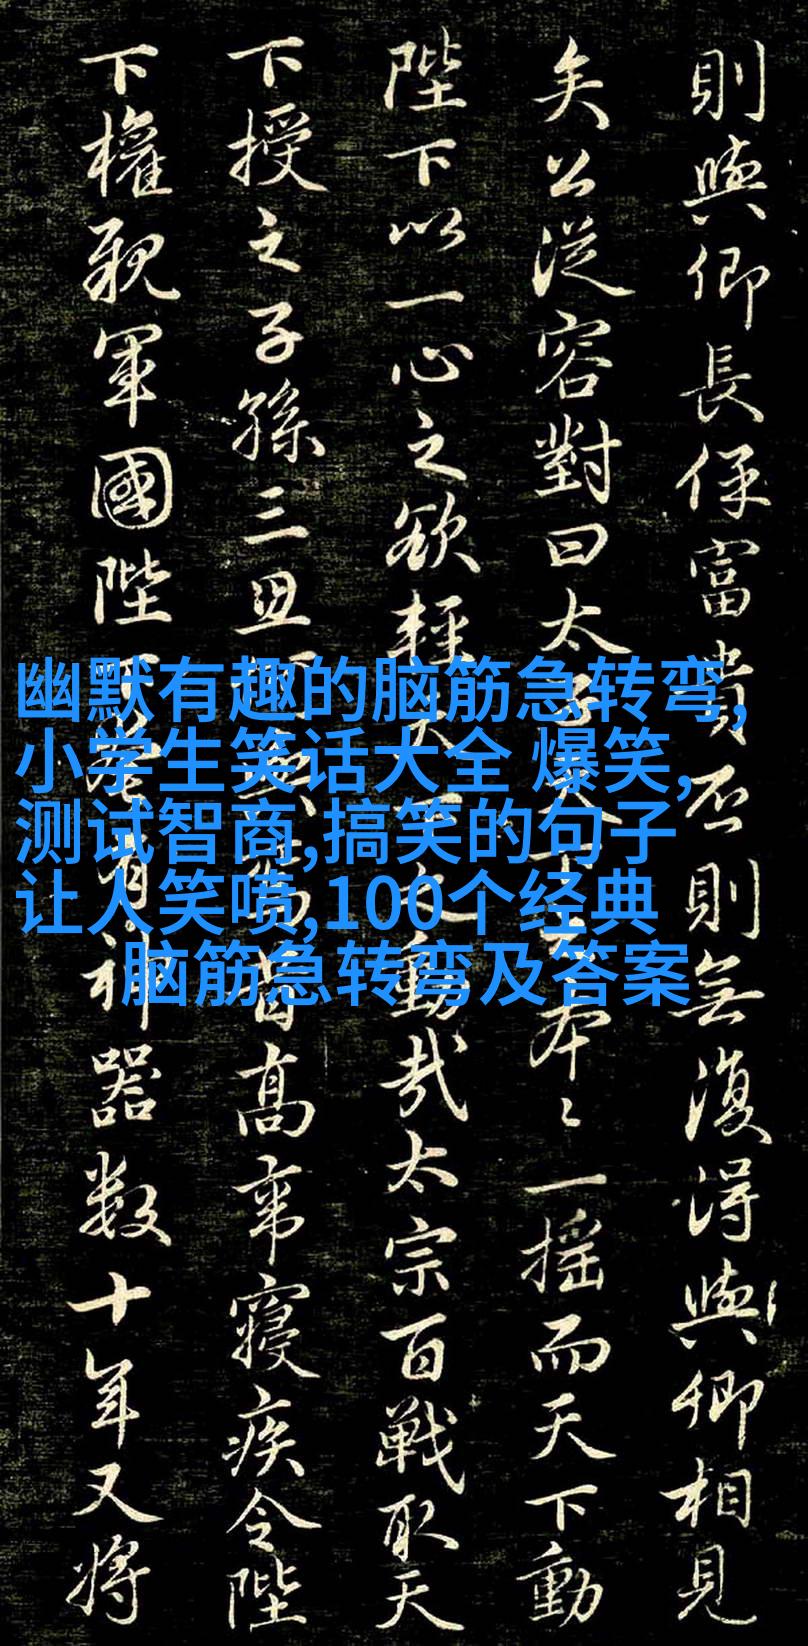 則與卿長保富貴否則無復得與卿相見
矣公從容對曰太一搖而天下動
陛下以一心之欲輕動哉太宗百戰取天
下授之子孫三高帝寢疾令陛
下權親軍國陛有神器数十年又將
幽默有趣的脑筋急转弯,
小学生笑话大全 爆笑,
测试智商,搞笑的句子
让人笑喷,100个经典
脑筋急转弯及答案